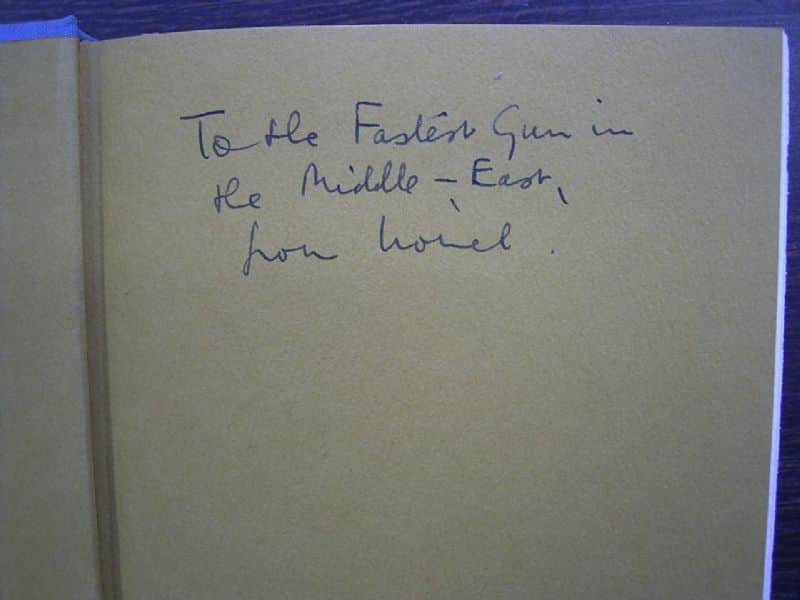 To the Fastest Gun in
the Middle-East,
from Lionel.